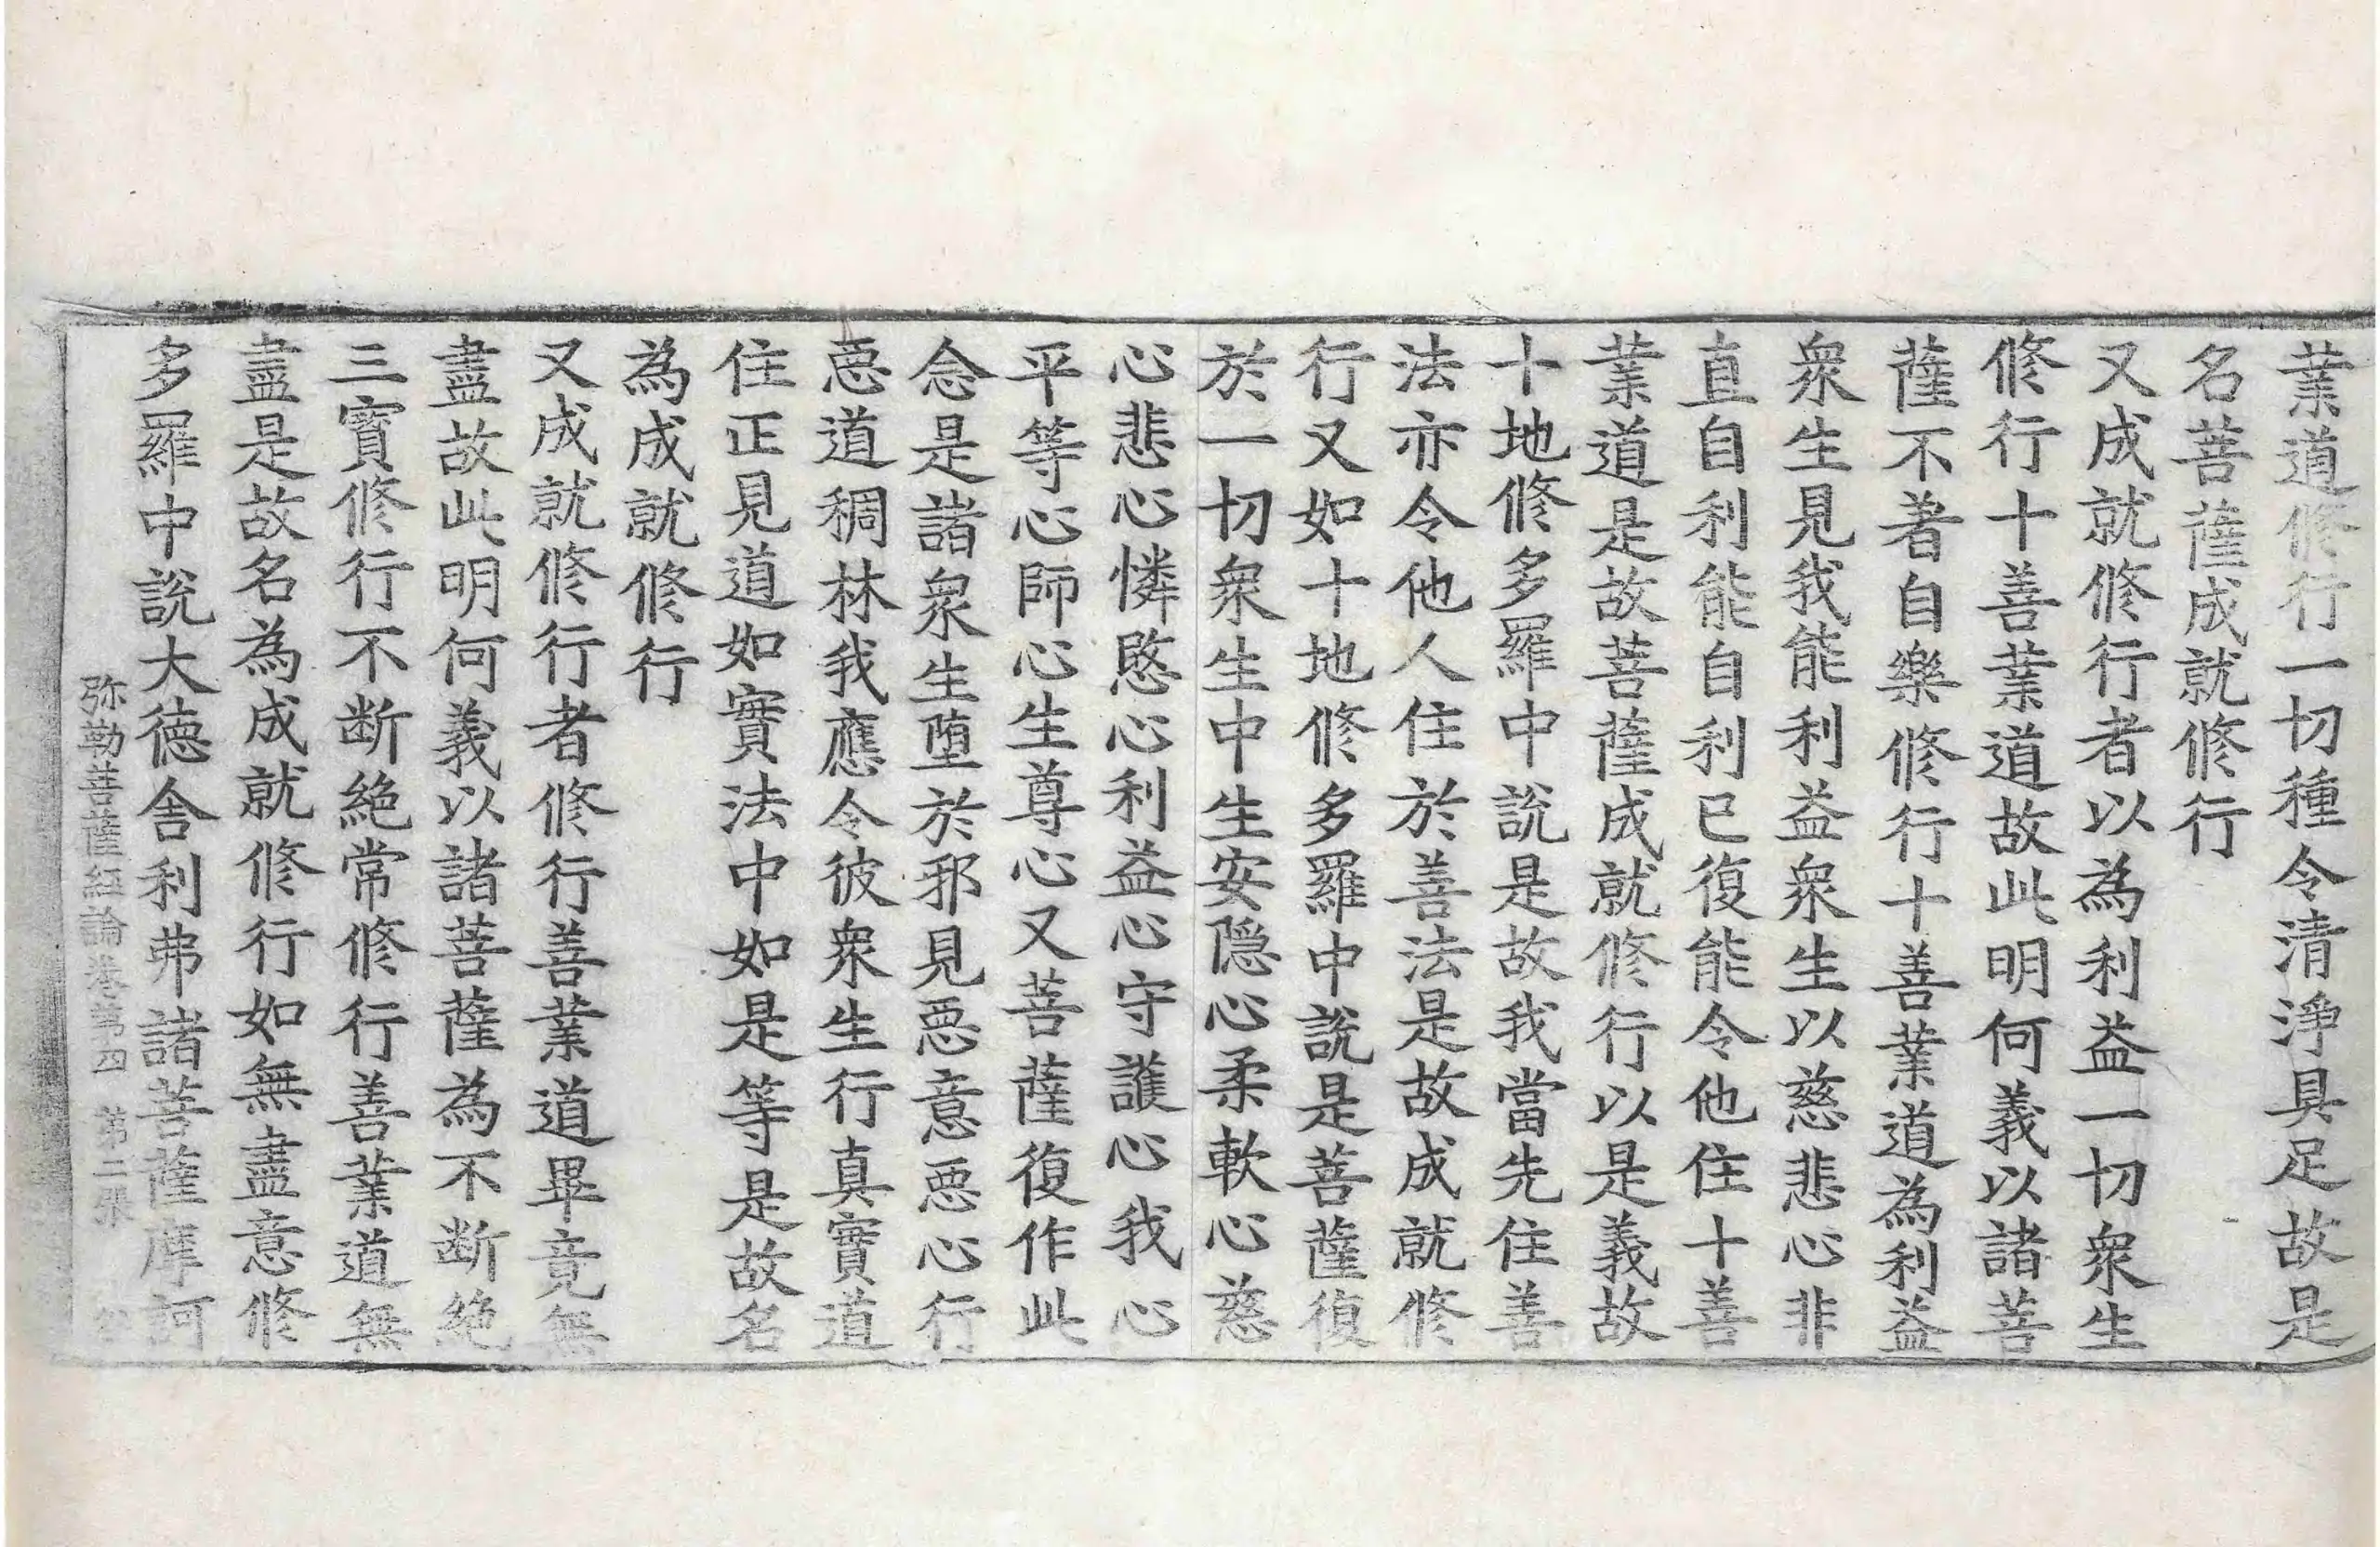 業道修行一切種令清淨具足故是
名菩薩成就修行
又成就修行者以為利益一切衆生
修行十善業道故此明何義以諸菩
薩不著自樂修行十善業道為利益
衆生見我能利益衆生以慈悲心非
直自利能自利已復能令他住十善
業道是故菩薩成就修行以是義故
十地修多羅中說是故我當先住善
法亦令他人住於善法是故成就修
行又如十地修多羅中說是菩薩復
於一切衆生中生安隱心柔軟心慈
心悲心憐愍心利益心守護心我心
平等心師心生尊心又菩薩復作此
念是諸衆生堕於邪見惡意惡心行
惡道稠林我應令彼衆生行真實道
住正見道如實法中如是等是故名
為成就修行
又成就修行者修行善業道畢竟無
盡故此明何義以諸菩薩為不断絶
三寳修行不断絶常修行善業道無
盡是故名為成就修行如無盡意修
多羅中說大德舍利弗諸菩薩摩訶
弥勒菩薩經論卷第四 第二張